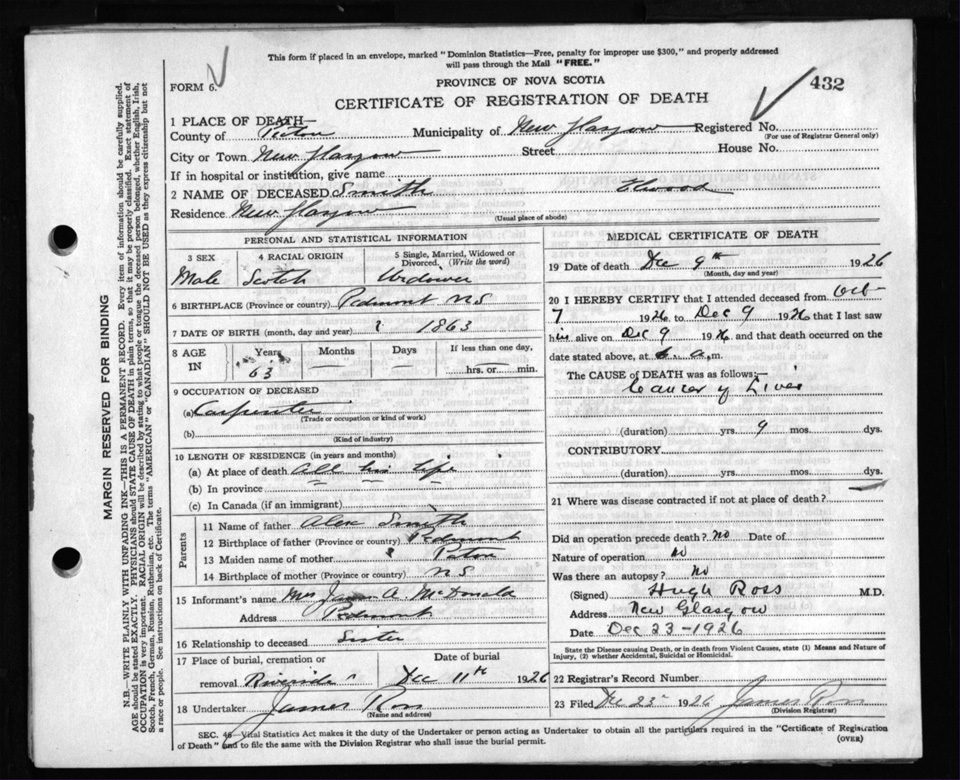 This form if placed in an envelope, marked "Dominion Statistics—Free, penalty for improper use $300," and properly addressed
will pass through the Mail "FREE."
FORM 6.
PROVINCE OF NOVA SCOTIA
432
CERTIFICATE OF REGISTRATION OF DEATH
1 PLACE OF DEATH—
County of Pictou Municipality of New Glasgow Registered No.
(For use of Registrar General only)
City or Town New Glasgow Street House No.
If in hospital or institution, give name
2 NAME OF DECEASED Smith Elwood
Residence New Glasgow
(Usual place of abode)
PERSONAL AND STATISTICAL INFORMATION
3 SEX 4 RACIAL ORIGIN 5 Single, Married, Widowed or Divorced. (Write the word)
Male Scotch Widower
6 BIRTHPLACE (Province or country) Piedmont NS
7 DATE OF BIRTH (month, day and year) ? 1863
8 AGE IN Years Months Days If less than one day,
63 — — hrs. or min.
9 OCCUPATION OF DECEASED
(a) Carpenter
(Trade or occupation or kind of work)
(b)
(Kind of industry)
10 LENGTH OF RESIDENCE (in years and months)
(a) At place of death All his life
(b) In province
(c) In Canada (if an immigrant)
Parents
11 Name of father Alex Smith
12 Birthplace of father (Province or country) Piedmont
13 Maiden name of mother ?
14 Birthplace of mother (Province or country) NS
15 Informant's name Mrs James A. McDonald
Address Piedmont
16 Relationship to deceased Sister
17 Place of burial, cremation or Date of burial
removal Riverside Dec 11th 1926
18 Undertaker James Ross
(Name and address)
MEDICAL CERTIFICATE OF DEATH
19 Date of death Dec 9th 1926
(Month, day and year)
20 I HEREBY CERTIFY that I attended deceased from Oct
7 1926 to Dec 9 1926 that I last saw
him alive on Dec 9 1926 and that death occurred on the
date stated above, at a.m.
The CAUSE of DEATH was as follows:—
Cancer of Liver
(duration) yrs. 9 mos. dys.
CONTRIBUTORY
(duration) yrs. mos. dys.
21 Where was disease contracted if not at place of death?
Did an operation precede death? No Date of
Nature of operation No
Was there an autopsy? No
(Signed) Hugh Ross M.D.
Address New Glasgow
Date Dec 23-1926
State the Disease causing Death, or in death from Violent Causes, state (1) Means and Nature of
Injury, (2) whether Accidental, Suicidal or Homicidal.
22 Registrar's Record Number
23 Filed Dec 23rd 1926 James Ross
(Division Registrar)
SEC. 46—Vital Statistics Act makes it the duty of the Undertaker or person acting as Undertaker to obtain all the particulars required in the "Certificate of Registration
of Death" and to file the same with the Division Registrar who shall issue the burial permit.
(OVER)
MARGIN RESERVED FOR BINDING
N.B.—WRITE PLAINLY WITH UNFADING INK—THIS IS A PERMANENT RECORD. Every item of information should be carefully supplied.
AGE should be stated EXACTLY. PHYSICIANS should STATE CAUSE OF DEATH in plain terms, so that it may be properly classified. Exact statement of
OCCUPATION is very important. RACIAL ORIGIN will be described by stating to what people or tongue the deceased person belonged, whether English, Irish,
Scotch, French, German, Russian, Ruthenian, etc. The terms "AMERICAN" or "CANADIAN" SHOULD NOT BE USED as they express citizenship but not
a race or people. See instructions on back of Certificate.